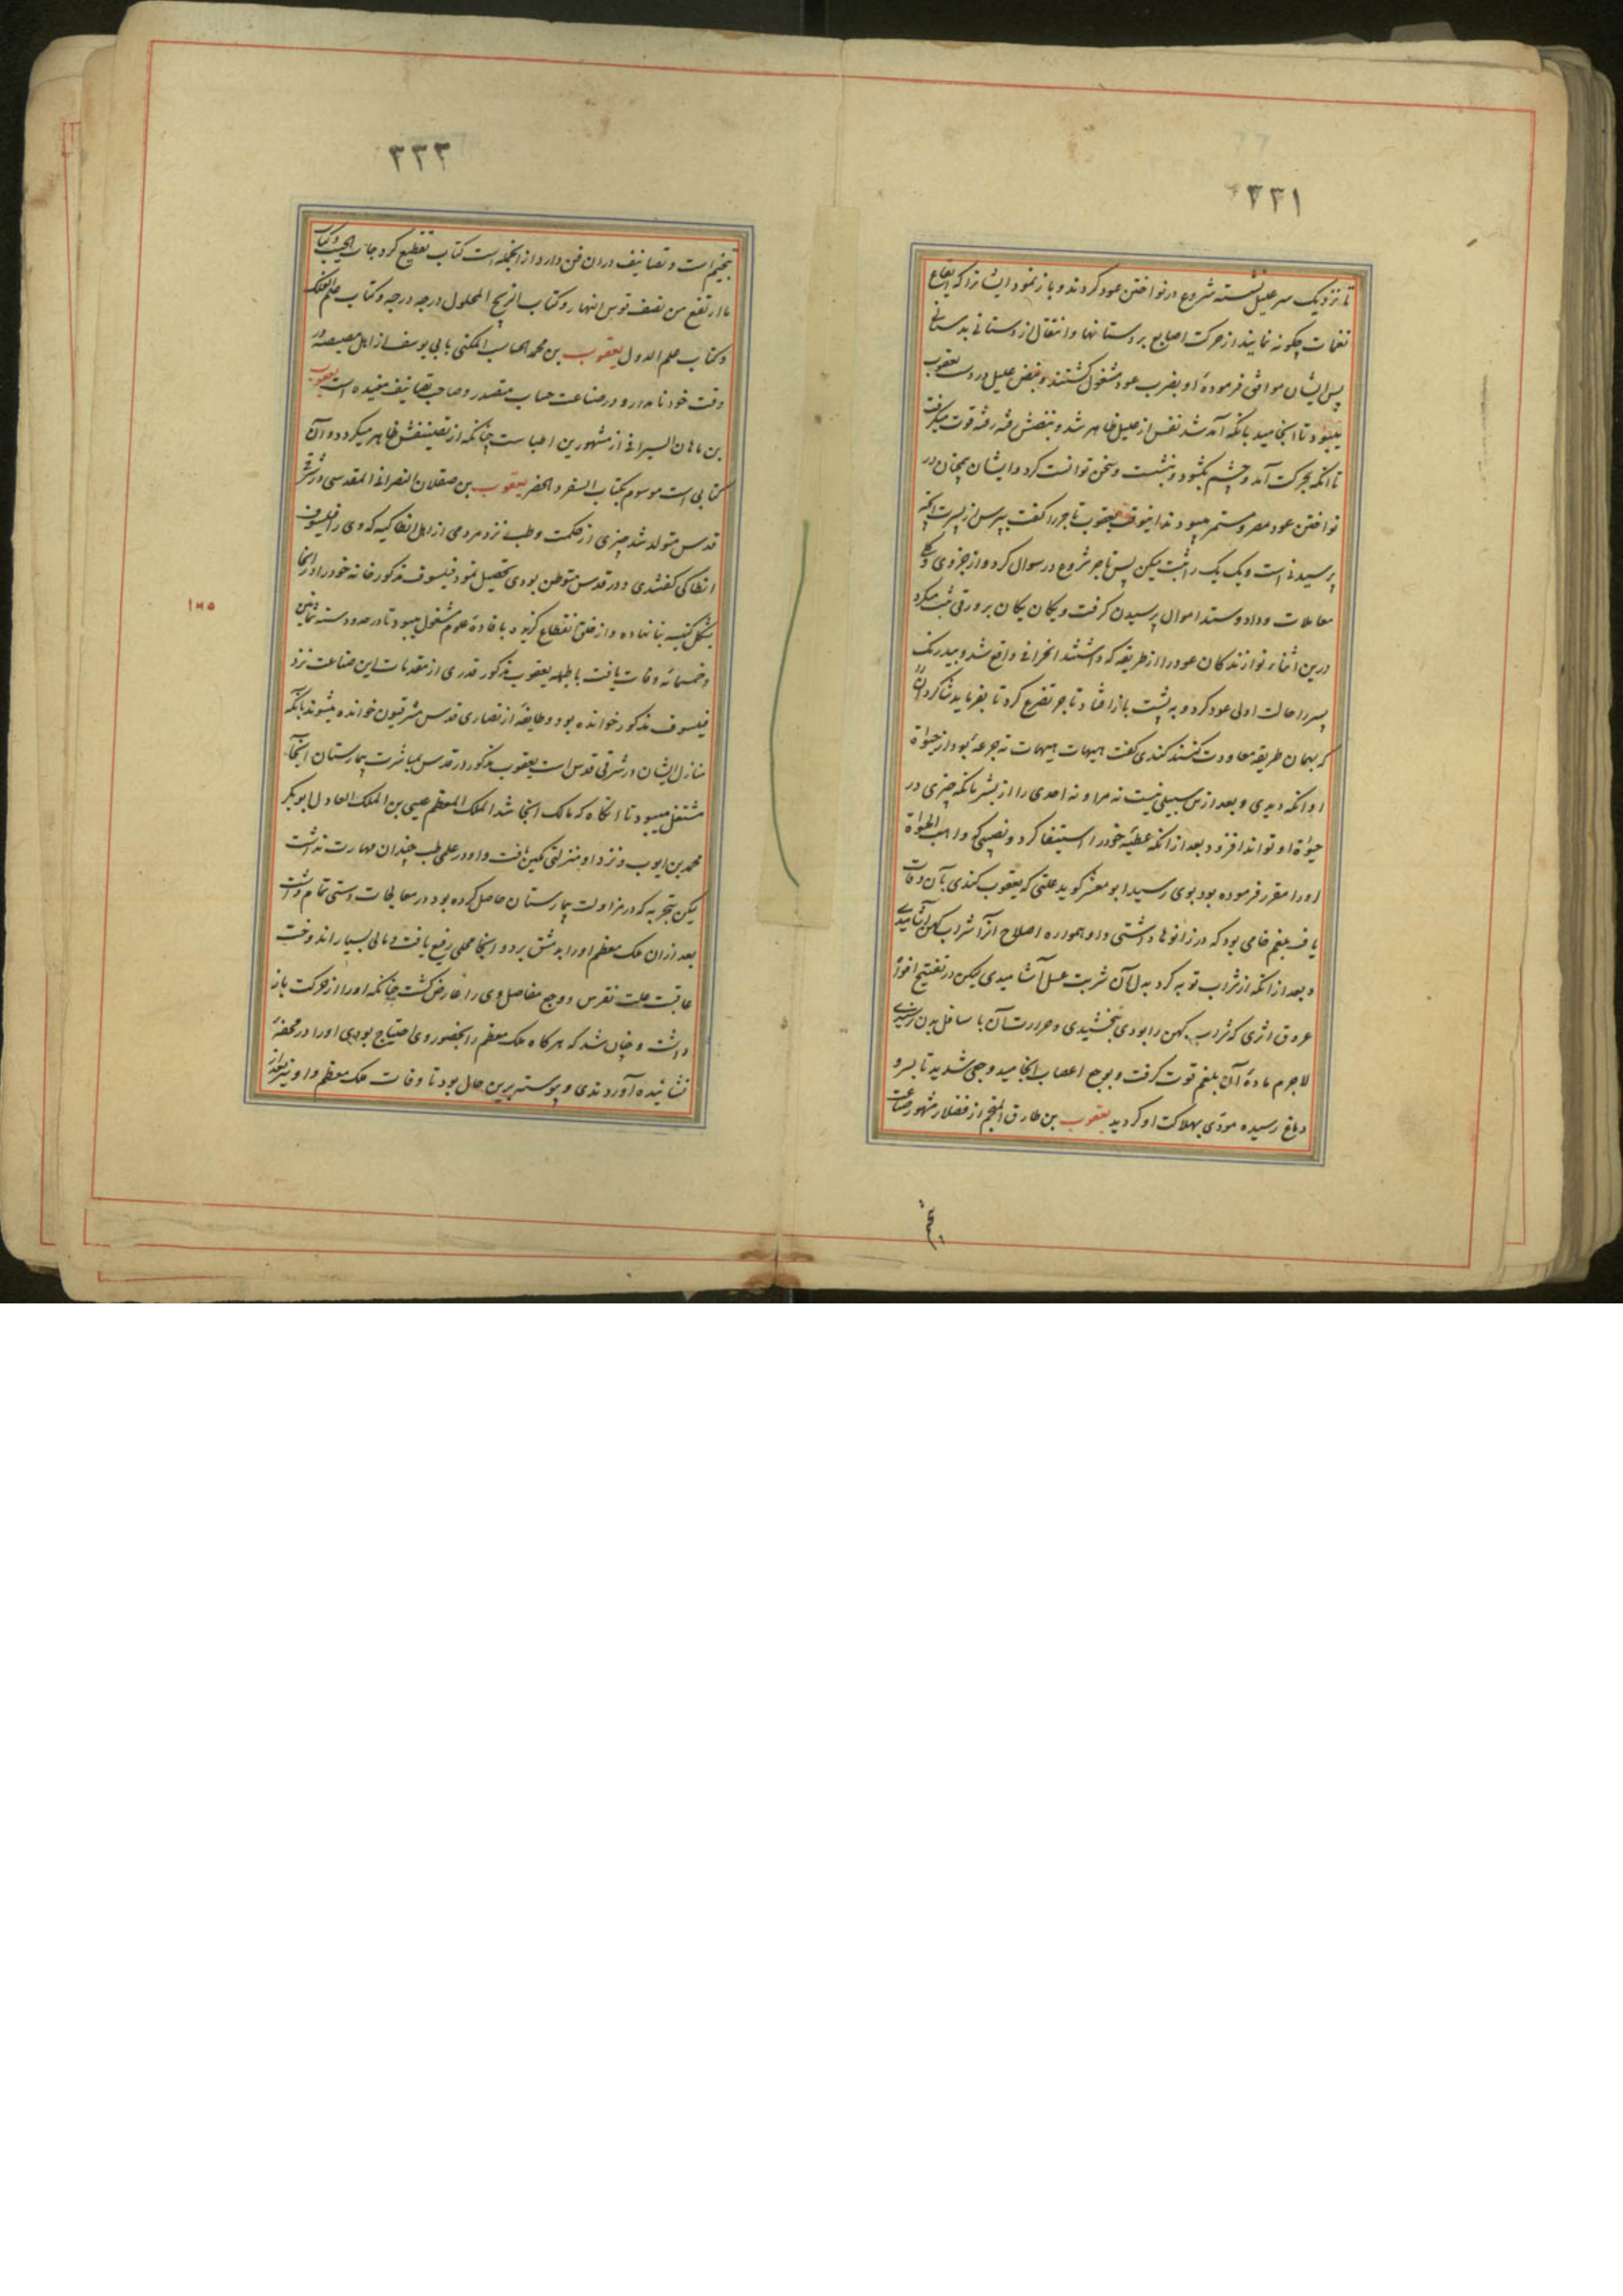 ۳۳۱
تا نزدیک سر علیل نشسته شروع در نواختن عود کردند و باز نمود ایشانرا که ایقاع
نغمات چکونه نمایند از حرکت اصابع بر دستانها و انتقال از دستانی بدستانی
پس ایشان موافق فرمودهٔ او بضرب عود مشغول کشتند و نبض علیل در دست یعقوب
میبود تا انجامید بانکه آمد شد نفس از علیل ظاهر شد و نبضش رفته رفته قوت میکرفت
تا انکه بحرکت آمد و چشم بکشود و بنشست و سخن توانست کرد و ایشان همچنان در
نواختن عود مصر و مستمر میبودند اینوقت یعقوب تاجر را کفت بپرس از پسرت انچه
پرسیدنی است و یک یک را ثبت میکن پس تاجر شروع در سوال کرد و از جزوی و کلی
معاملات و داد و ستد اموال پرسیدن کرفت و یکان یکان بر ورقی ثبت میکرد
درین اثناء نوازندکان عود را از طریقه که داشتند انحرافی واقع شد و بیدرنک
پسر را حالت اولی عود کرد و به پشت باز افتاد تاجر تضرع کرد تا بفرماید شاکردان را
که بهمان طریقه معاودت کنند کندی کفت هیهات هیهات ته جرعهٔ بود از حیوة
او انکه دیدی و بعد ازین سبیلی نیست نه مرا و نه احدی را از بشر بانکه چیزی در
حیوة او تواند افزود بعد از انکه عطیهٔ خود را استیفا کرد و نصیبی که واهب الحیوة
او را مقرر فرموده بود بوی رسید ابو معشر کوید علتی که یعقوب کندی بآن وفات
یافت بلغم خامی بود که در زانوها داشتی و او همواره اصلاح آنرا شراب کهن آشامیدی
و بعد از انکه از شراب توبه کرد بدل آن شربت عسل آشامیدی لیکن در تفتیح افواه
عروق اثری که شراب کهن را بودی نبخشیدی و حرارت آن با سافل بدن نرسیدی
لاجرم مادهٔ آن بلغم قوت کرفت و بوجع اعصاب انجامید وجعی شدید تا بسر و
دماغ رسیده مودی بهلاکت او کردید یعقوب بن طارق المنجم از فضلاء مشهور صناعت
۳۳۲
تنجیم است و تصانیف دران فن دارد از انجمله است کتاب تقطیع کردجات الجیب و کتاب
ما ارتفع من نصف قوس النهار و کتاب الزیج المحلول درجه درجه و کتاب علم الفلک
و کتاب علم الدول یعقوب بن محمد الحاسب المکنی بابی یوسف از اهل مصیصه در
وقت خود نامدار و در صناعت حساب متصدر و صاحب تصانیف مفیده است یعقوب
بن ماهان السیرافی از مشهورین اطبا ست چنانکه از تصنیفش ظاهر میکردد و آن
کتابی است موسوم بکتاب السفر و الحضر یعقوب بن صقلان النصرانی المقدسی در شرقی
قدس متولد شد چیزی از حکمت و طب نزد مردمی از اهل انطاکیه که وی را فیلسوف
انطاکی کفتندی و در قدس متوطن بودی تحصیل نمود فیلسوف مذکور خانه خود را در انجا
بشکل کنیسه بنا نهاده و از خلق انقطاع کزید بافادهٔ علوم مشغول میبود تا در حدود سنه ثمانین
و خمسمائه وفات یافت بالجمله یعقوب مذکور قدری از مقدمات این صناعت نزد
فیلسوف مذکور خوانده بود و طایفهٔ از نصاری قدس مشرقیون خوانده میشوند بانکه
منازل ایشان در شرقی قدس است یعقوب مذکور در قدس بمباشرت بیمارستان انجا
مشتغل میبود تا انکاه که مالک انجا شد الملک المعظم عیسی بن الملک العادل ابوبکر
محمد بن ایوب و نزد او منزلتی مکین یافت و او در علم طب چندان مهارت نداشت
لیکن بتجربه که در مزاولت بیمارستان حاصل کرده بود در معالجات دستی تمام داشت
بعد ازان ملک معظم او را بدمشق برد و انجا محلی رفیع یافت و مالی بسیار اندوخت
عاقبت علت نقرس و وجع مفاصل وی را عارض کشت چنانکه او را از حرکت باز
داشت و چنان شد که هرکاه ملک معظم را بحضور وی احتیاج بودی او را در محفهٔ
نشانیده آوردندی و پیوسته برین حال بود تا وفات ملک معظم و او نیز بعد از
۱۸۵